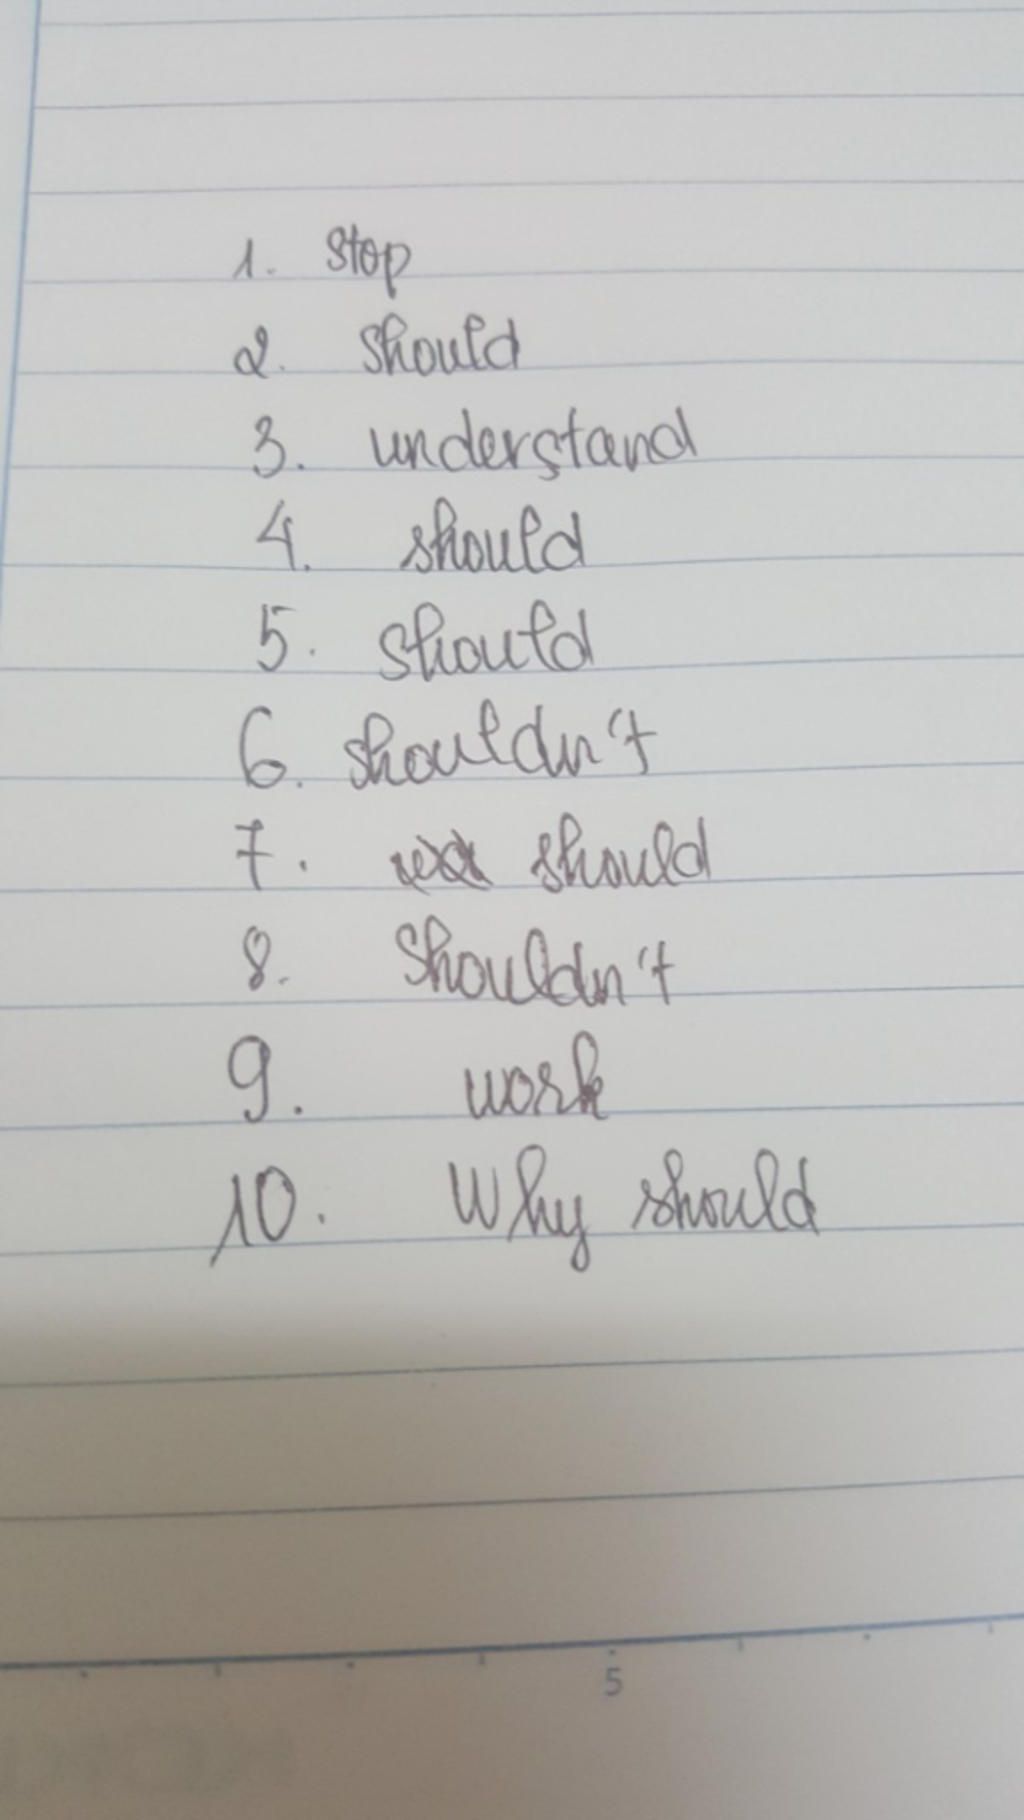 1. stop
2. should
3. understand
4. should
5. should
6. shouldn't
7. should
8. shouldn't
9. work
10. Why should
5